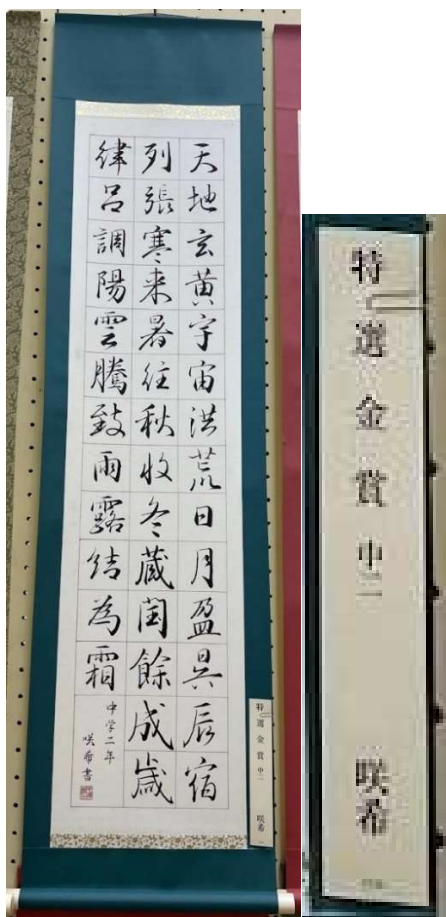 天地玄黄宇宙洪荒日月盈昃辰宿
列張寒来暑往秋收冬蔵閏餘成歳
律呂調陽雲騰致雨露結為霜
中学二年
咲希書
特選 金賞 中二 咲希
特選金賞 中二 咲希